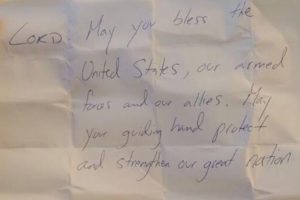 LORD: May you bless the
United States, our armed
forces and our allies. May
your guiding hand protect
and strengthen our great nation